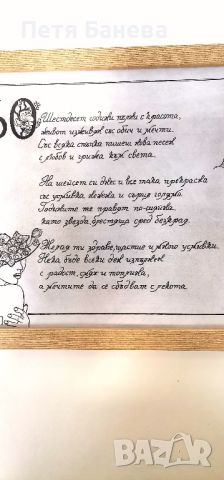 Петя Банева
60
Шестдесет години пълни с красота,
живот изживян със обич и мечти.
Със всяка стъпка пишеш нова песен
с любов и грижа към света.
На шейсет си днес и все така прекрасна
със усмивка нежна и сърце голямо.
Годините те правят по-сияйна
като звезда, блестяща сред безкрая.
Желая ти здраве, щастие и много усмивки.
Нека бъде всеки ден изпълнен
с радост, смях и топлина,
а мечтите да се сбъдват с лекота
BAZAR